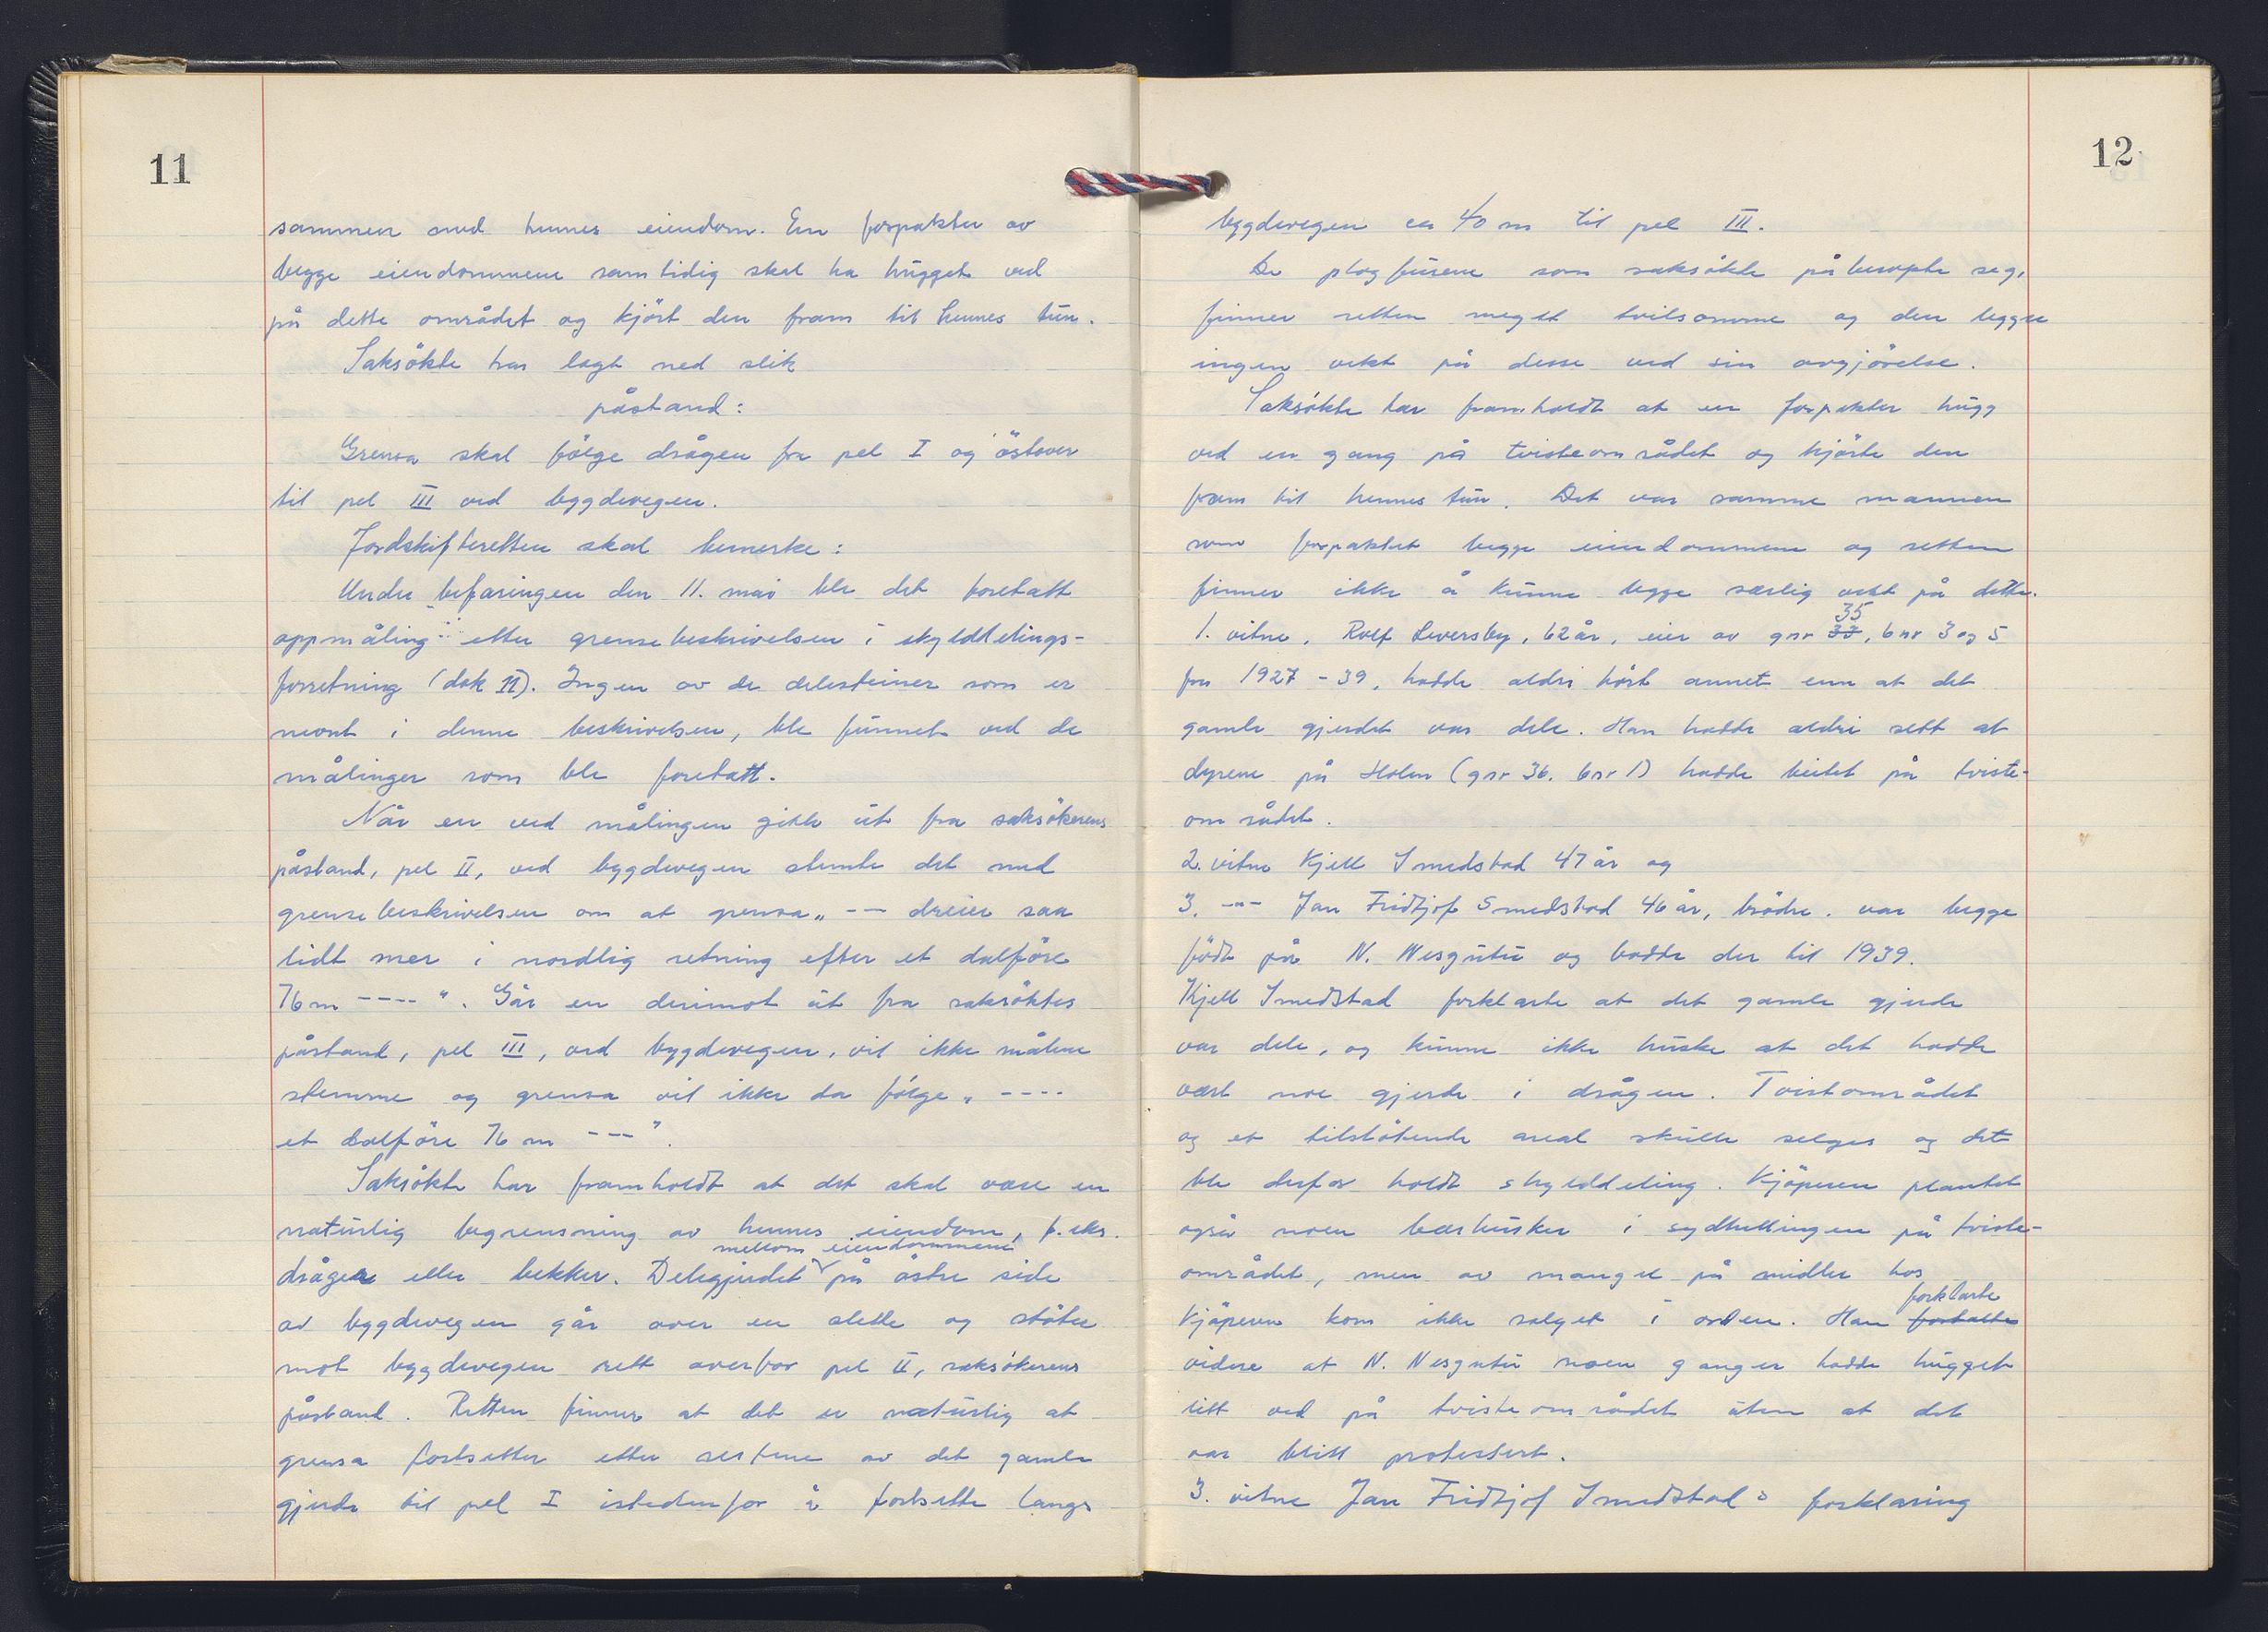 11
sammen med hennes eiendom. En forpakter av
begge eiendommene samtidig skal ha hugget ved
på dette området og kjört den fram til hennes tun.
Saksökte har lagt ned slik
påstand:
Grensa skal fölge drågen fra pel I og östover
til pel III ved bygdevegen.
Jordskifteretten skal bemerke:
Under befaringen den 11. mai ble det foretatt
oppmåling etter grensebeskrivelsen i skylddelings-
forretning (dok 11). Ingen av de delesteiner som er
nevnt i denne beskrivelsen, ble funnet ved de
målinger som ble foretatt.
Når en ved målingen gikk ut fra saksökerens
påstand, pel II, ved bygdevegen stemte det med
grensebeskrivelsen om at grensa „ -- dreier saa
lidt mer i nordlig retning efter et dalföre
76 m ---- ". Går en derimot ut fra saksöktes
påstand, pel III, ved bygdevegen, vil ikke målene
stemme og grensa vil ikke da fölge „ ----
et dalföre 76 m --- ".
Saksökte har framholdt at det skal være en
naturlig begrensning av hennes eiendom, f.eks.
mellom eiendommene
dråger eller bekker. Delegjerdet på östre side
av bygdevegen går over en slette og stöter
mot bygdevegen rett overfor pel II, saksökerens
påstand. Retten finner at det er naturlig at
grensa fortsetter etter restene av det gamle
gjerde til pel I istedenfor å fortsette langs
12
bygdevegen ca 40 m til pel III.
De plogfurene som saksökte påberopte seg,
finner retten meget tvilsomme og den legger
ingen vekt på desse ved sin avgjörelse.
Saksökte har framholdt at en forpakter hugg
ved en gang på tvisteområdet og kjörte den
fram til hennes tun. Det var samme mannen
som forpaktet begge eiendommene og retten
finner ikke å kunne legge særlig vekt på dette.
35
1. vitne, Rolf Leversby, 62 år, eier av gnr 33, bnr 3 og 5
fra 1927 - 39, hadde aldri hört annet enn at det
gamle gjerdet var dele. Han hadde aldri sett at
dyrene på Holm (gnr 36. bnr 1) hadde beitet på tviste-
området.
2. vitne Kjell Smedstad 47 år og
3. -"- Jan Fridtjof Smedstad 46 år, brödre. var begge
födt på N. Nesgutu og bodde der til 1939.
Kjell Smedstad forklarte at det gamle gjerde
var dele, og kunne ikke huske at det hadde
vært noe gjerde i drågen. Tvistområdet
og et tilstötende areal skulle selges og det
ble derfor holdt skylddeling. Kjöperen plantet
også noen bærbusker i sydhellingen på tviste-
området, men av mangel på midler hos
forklarte
Kjöperen kom ikke salget i orden. Han fortalte
videre at N. Nesgutu noen ganger hadde hugget
litt ved på tvisteområdet uten at det
var blitt protestert.
3. vitne Jan Fridtjof Smedstad's forklaring